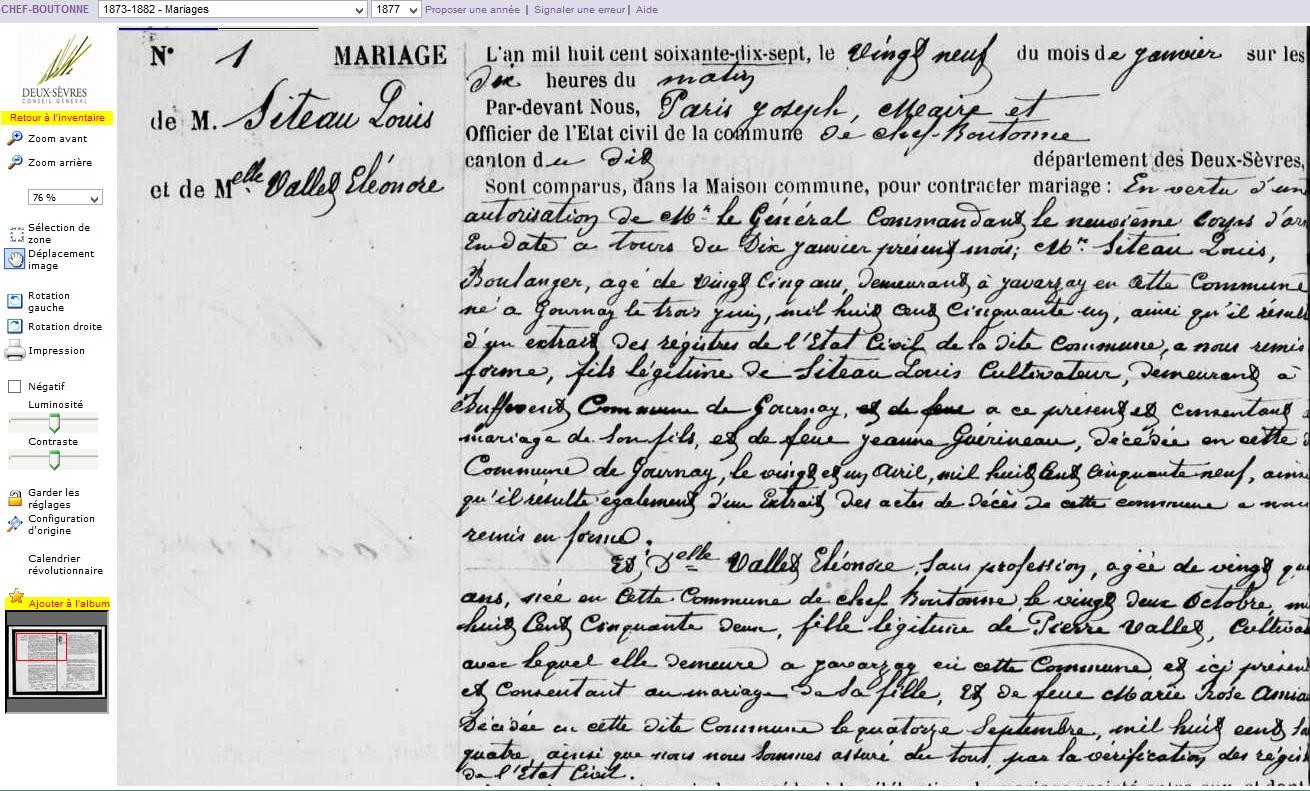 CHEF-BOUTONNE 1873-1882 - Mariages 1877 Proposer une année | Signaler une erreur | Aide
DEUX-SÈVRES
CONSEIL GÉNÉRAL
Retour à l'inventaire
Zoom avant
Zoom arrière
76 %
Sélection de
zone
Déplacement
image
Rotation
gauche
Rotation droite
Impression
Négatif
Luminosité
Contraste
Garder les
réglages
Configuration
d'origine
Calendrier
révolutionnaire
Ajouter à l'album
N° 1 MARIAGE
de M. Siteau Louis
et de Melle Vallet Eléonore
L'an mil huit cent soixante-dix-sept, le vingt neuf du mois de janvier sur les
dix heures du matin
Par-devant Nous, Paris Joseph, Maire et
Officier de l'Etat civil de la commune de chef-Boutonne
canton du dit département des Deux-Sèvres,
Sont comparus, dans la Maison commune, pour contracter mariage : En vertu d'un
autorisation de Mr le Général Commandant le neuvième Corps d'ar
En date a tours du Dix janvier présent mois; Mr Siteau Louis,
Boulanger, agé de vingt Cinq ans, demeurant à javarzay en cette Commune
né a Gournay le trois juin, mil huit cent Cinquante un, ainsi qu'il résul
d'un extrait des régistres de l'Etat Civil de la dite Commune, a nous remis
forme, fils légitime de Siteau Louis Cultivateur, demeurant à
Commune de Gournay, et de feue a ce présent et consentant a
mariage de son fils, et de feue jeanne Guérineau, décédée en cette
Commune de Gournay, le vingt et un Avril, mil huit Cent Cinquante neuf, ains
qu'il résulte également d'un Extrait des actes de décès de cette commune a nous
remis en forme.
Et, Delle Vallet Eléonore, Sans profession, agée de vingt qu
ans, née en Cette Commune de chef Boutonne, le vingt deux Octobre, m
huit Cent Cinquante deux, fille légitime de Pierre Vallet, Cultivat
avec lequel elle demeure a javarzay en cette Commune, et ici présen
et Consentant au mariage de sa fille, Et de feue Marie Rose
Décédée en cette dite Commune le quatorze Septembre, mil huit cent
quatre, ainsi que nous nous sommes assuré du tout, par la vérification des régis
de l'Etat Civil.